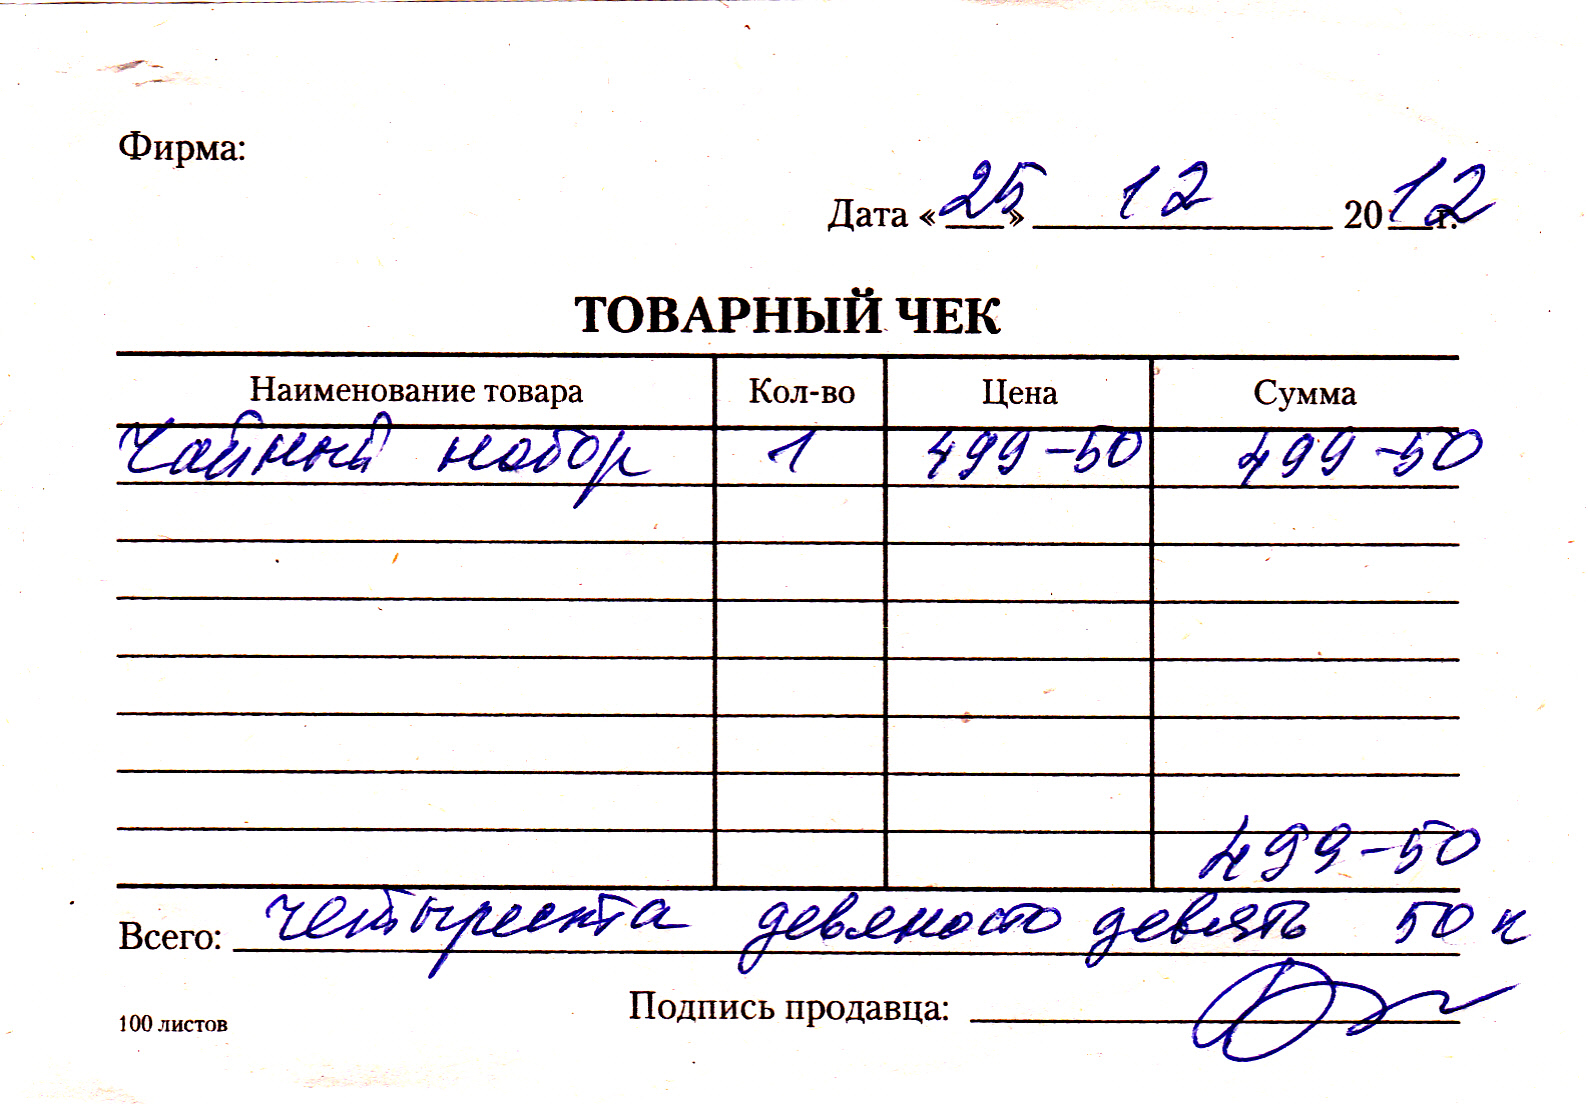 Фирма:
Дата «25» 12 2012 г.
ТОВАРНЫЙ ЧЕК
Наименование товара Кол-во Цена Сумма
Чайный набор 1 499-50 499-50
499-50
Всего: четыреста девяносто девять 50 к
Подпись продавца:
100 листов